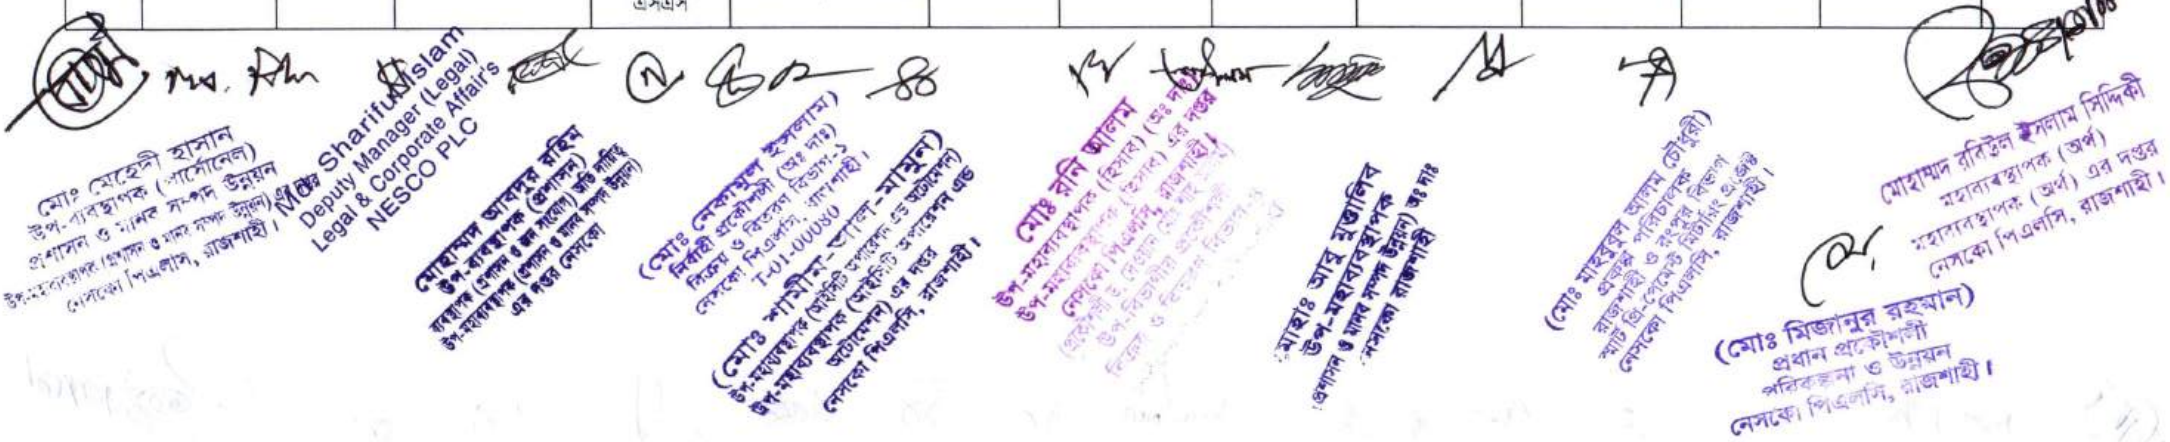 এসএস
মোঃ মেহেদী হাসান
উপ-ব্যবস্থাপক (পার্সোনেল)
প্রশাসন ও মানব সম্পদ উন্নয়ন
উপ-মহাব্যবস্থাপক (প্রশাসন ও মানব সম্পদ উন্নয়ন) এর দপ্তর
নেসকো পিএলসি, রাজশাহী।
Md. Shariful Islam
Deputy Manager (Legal)
Legal & Corporate Affair's
NESCO PLC
মোহাম্মদ আবদুর রহিম
উপ-ব্যবস্থাপক (প্রশাসন)
ব্যবস্থাপক (প্রশাসন ও জন সংযোগ) অতি দায়িত্ব
উপ-মহাব্যবস্থাপক (প্রশাসন ও মানব সম্পদ উন্নয়ন)
এর দপ্তর নেসকো
(মোঃ নেকামুল ইসলাম)
নির্বাহী প্রকৌশলী (অঃ দাঃ)
বিক্রয় ও বিতরণ বিভাগ-১
নেসকো পিএলসি, রাজশাহী।
T-01-00080
(মোঃ শামীম-আল-মামুন)
উপ-মহাব্যবস্থাপক (আইসিটি অপারেশন এন্ড অটোমেশন)
উপ-মহাব্যবস্থাপক (আইসিটি অপারেশন এন্ড
অটোমেশন) এর দপ্তর
নেসকো পিএলসি, রাজশাহী।
মোঃ রনি আলম
উপ-মহাব্যবস্থাপক (হিসাব) (অঃ দাঃ)
উপ-মহাব্যবস্থাপক (হিসাব) এর দপ্তর
নেসকো পিএলসি, রাজশাহী।
মোহাঃ আবু মুত্তালিব
উপ-মহাব্যবস্থাপক
(প্রশাসন ও মানব সম্পদ উন্নয়ন) অঃ দাঃ
নেসকো রাজশাহী
(মোঃ মাহবুবুল আলম চৌধুরী)
প্রকল্প পরিচালক
রাজশাহী ও রংপুর বিভাগ
স্মার্ট প্রি-পেমেন্ট মিটারিং প্রজেক্ট
নেসকো পিএলসি, রাজশাহী।
মোহাম্মদ রবিউল ইসলাম সিদ্দিকী
মহাব্যবস্থাপক (অর্থ)
মহাব্যবস্থাপক (অর্থ) এর দপ্তর
নেসকো পিএলসি, রাজশাহী।
(মোঃ মিজানুর রহমান)
প্রধান প্রকৌশলী
পরিকল্পনা ও উন্নয়ন
নেসকো পিএলসি, রাজশাহী।